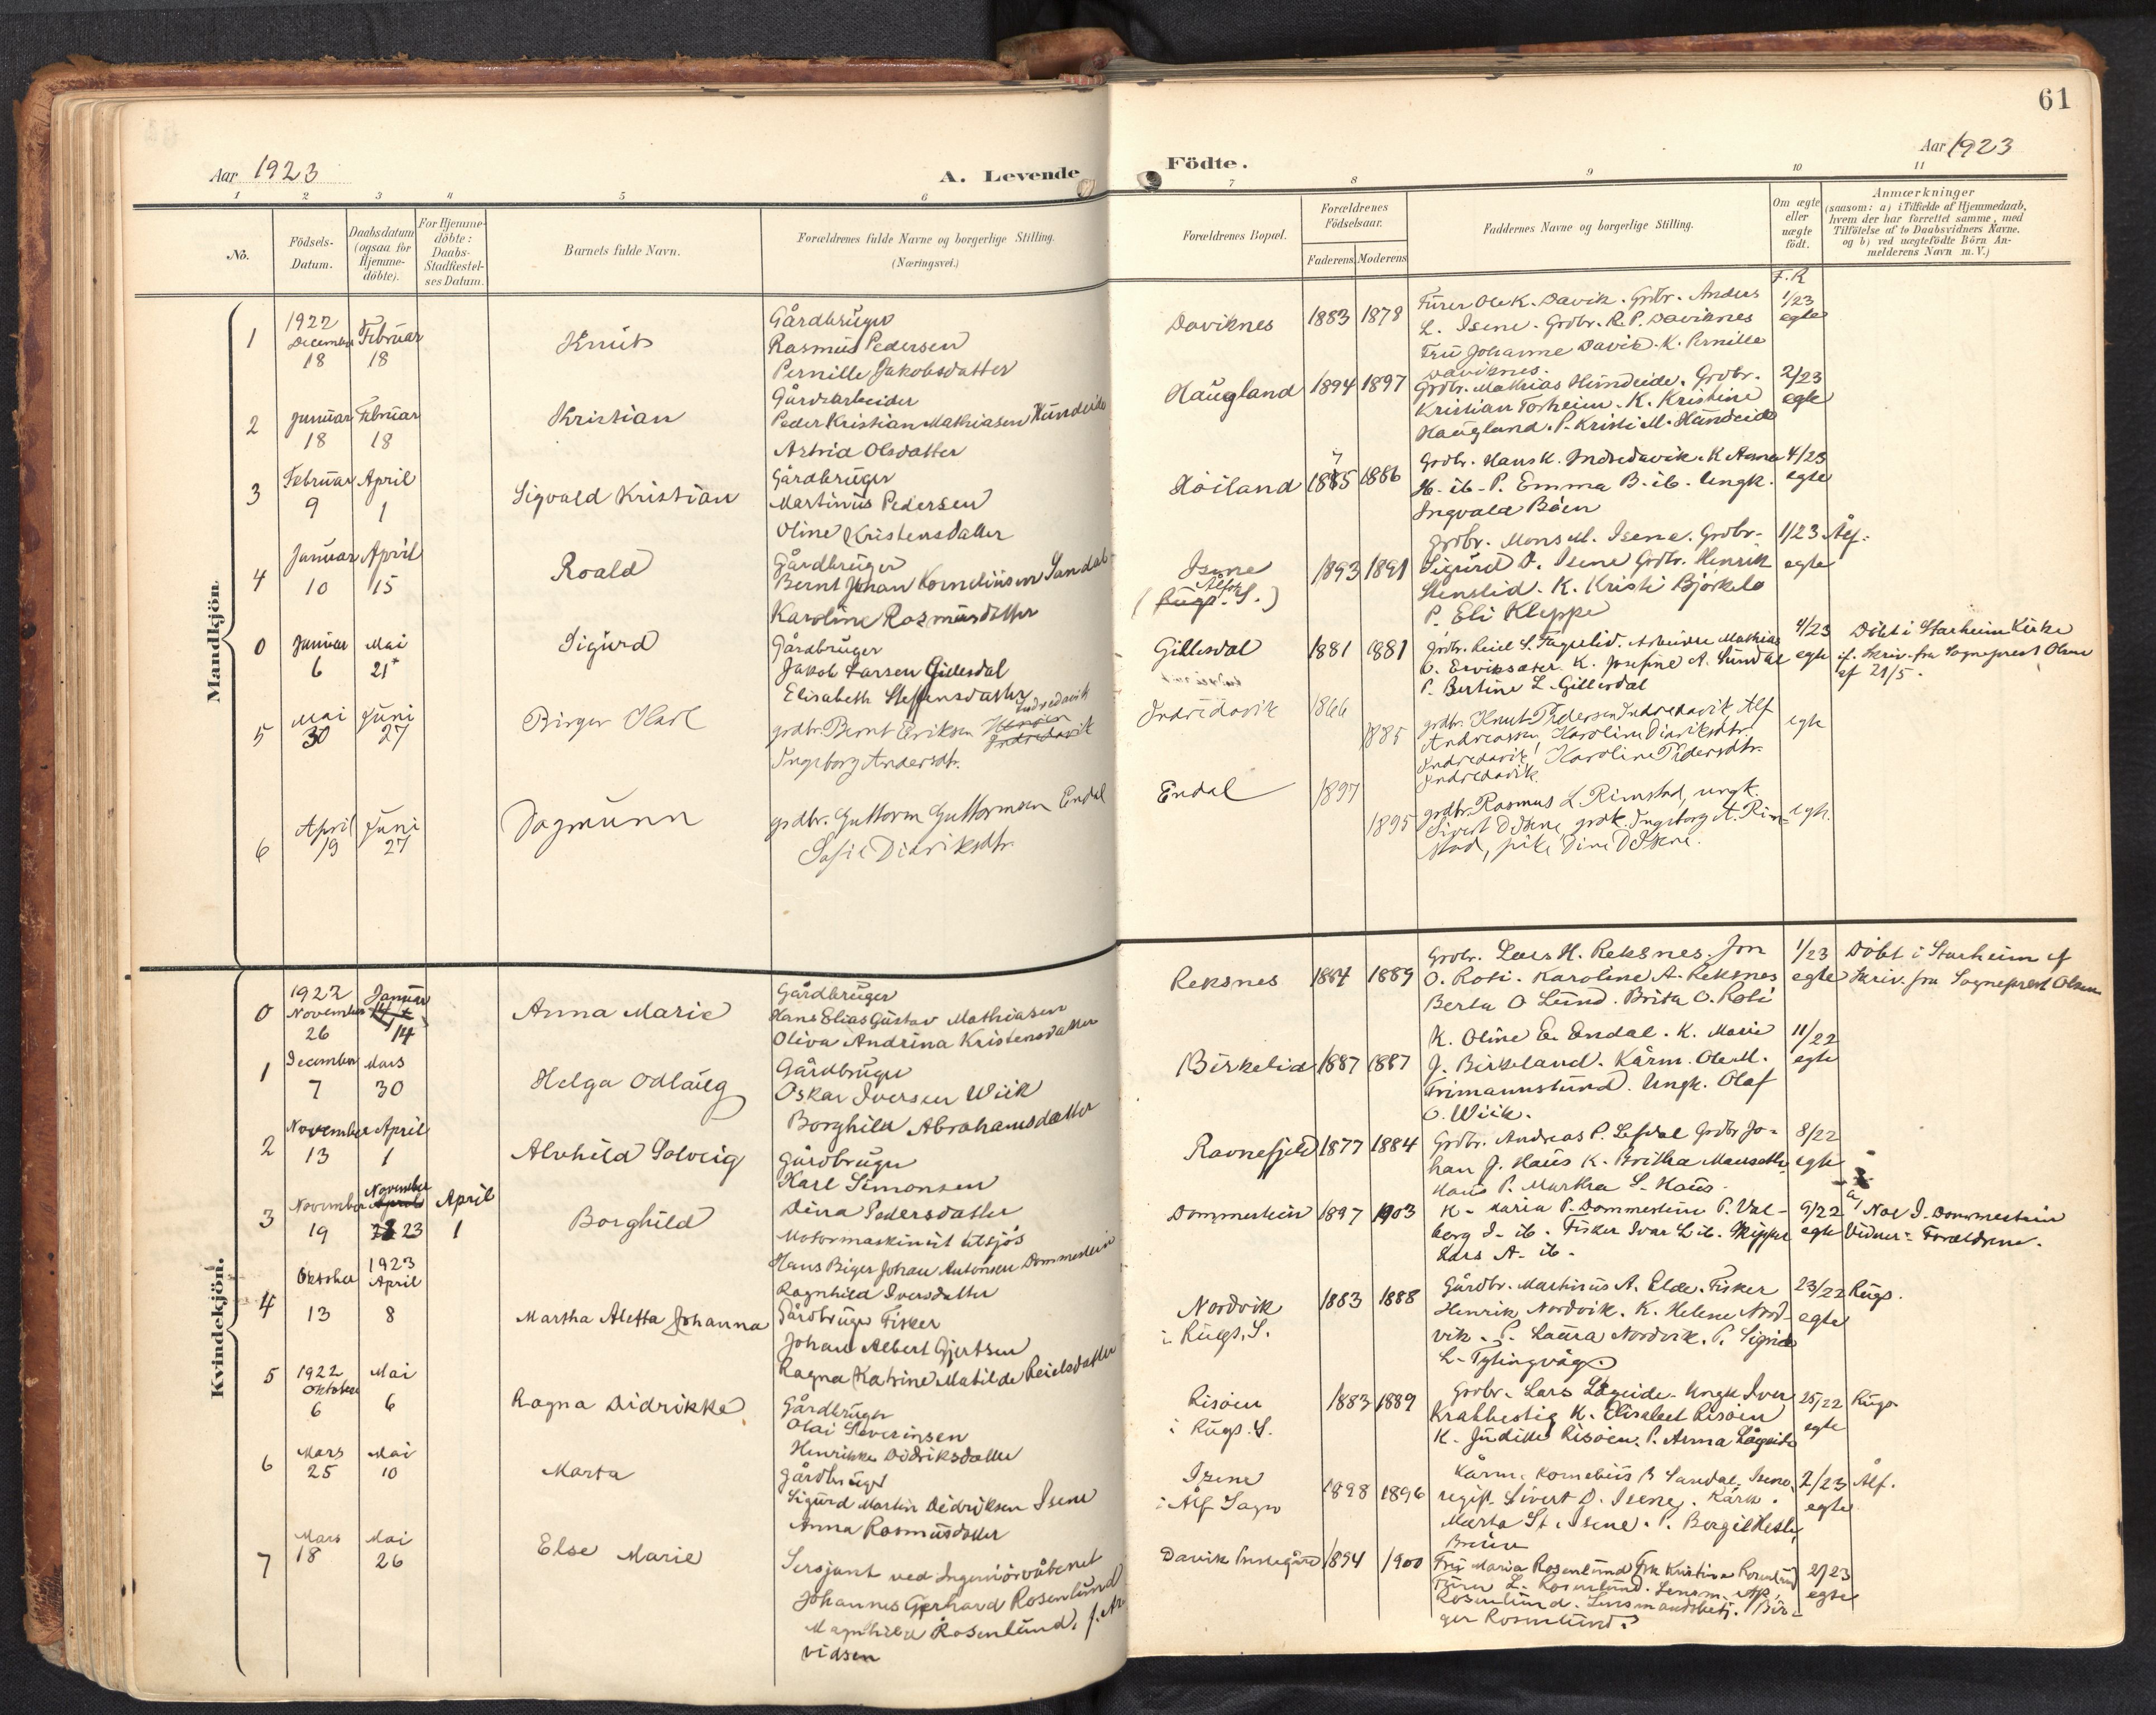 61
Aar 1923
A. Levende
Födte.
Aar 1923
1 2 3 4 5 6 7 8 9 10 11
No.
Födsels-
Datum.
Daabsdatum
(ogsaa for
Hjemme-
döbte).
For Hjemme-
döbte:
Daabs-
Stadfæstel-
ses Datum.
Barnets fulde Navn.
Forældrenes fulde Navne og borgerlige Stilling.
(Næringsvei.)
Forældrenes Bopæl.
Forældrenes
Födselsaar.
Faderens. Moderens.
Faddernes Navne og borgerlige Stilling.
Om ægte
eller
uægte
födt.
Anmærkninger
(saasom: a) i Tilfælde af Hjemmedaab,
hvem der har forrettet samme, med
Tilföielse af to Daabsvidners Navne.
og b) ved uægtefödte Börn An-
melderens Navn m. V.)
Mandkjön.
1
1922
December
18
Februar
18
Knut
Gårdbruger
Rasmus Pedersen
Pernille Jakobsdatter
Daviknes
1883
1878
Furer Ole K. Davik. Grdbr. Anders
L. Isene. Grdbr. R. P. Daviknes
Fru Johanne Davik. K. Pernille
Daviknes.
F. R
1/23
egte
2
Januar
18
Februar
18
Kristian
Gårdarbeider
Peder Kristian Mathiasen Hundeide
Astrid Olsdatter
Haugland
1894
1897
Grdbr. Mathias Hundeide. Grdbr.
Kristian Torheim. K. Kristine
Haugland. P. Kristi M. Hundeide
2/23
egte
3
Februar
9
April
1
Sigvald Kristian
Gårdbruger
Martinus Pedersen
Oline Kristensdatter
Höiland
7
1885
1886
Grdbr. Hans K. Indredavik. K Anna
H. ib. P. Emma B. ib. Ungk.
Ingvald Böen
4/23
egte
4
Januar
10
April
15
Roald
Gårdbruger
Bernt Johan Korneliusen Sandal
Karoline Rasmusdatter
Isene
Ålfot
(Rugs. S.)
1893
1891
Grdbr. Mons M. Isene. Grdbr.
Sigurd D. Isene Grdbr. Henrik
Henslid. K. Kristi Björkelo
P. Eli Kleppe
1/23
egte
Ålf.
0
Januar
6
Mai
21+
Sigurd
Gårdbruger
Jakob Larsen Gillesdal
Elisabeth Steffensdatter
Gillesdal
1881
1881
Grdbr. Reiel S. Fagerlid. Arbeider Mathias
O. Erviksæter. K. Josefine A. Sundal
P. Bertine L. Gillesdal
4/23
egte
Döbt i Starheim Kirke
if. Skriv. fra Sogneprest Olsen
af 21/5.
5
Mai
30
Juni
27
Birger Karl
grdbr. Bernt Eriksen Indredavik
Ingeborg Andersdtr.
Indredavik
1866
1885
grdbr. Knut Pedersen Indredavik, Alf
Andreassen, Karoline Didriksdtr.
Indredavik, Karoline Pedersdtr.
Indredavik.
egte
6
April
19
Juni
27
Dagmunn
grdbr. Guttorm Guttormsen Endal
Sofie Didriksdtr.
Endal
1897
1895
grdbr. Rasmus L. Rimstad, ungk.
Sivert D Isene, grdk. Ingeborg A. Rim-
stad, pike Dine D Isene.
egte
Kvindekjön.
0
1922
November
26
Januar
14
Anna Marie
Gårdbruger
Hans Elias Gustav Mathiasen
Oliva Andrina Kristensdatter
Reksnes
1884
1889
Grdbr. Lars H. Reksnes. Jon
O. Roti. Karoline A. Reksnes
Berta O Lund. Brita O. Roti
1/23
egte
Döbt i Starheim if
Skriv. fra Sogneprest Olsen
1
December
7
Mars
30
Helga Odlaug
Gårdbruger
Oskar Iversen Wiik
Borghild Abrahamsdatter
Birkelid
1887
1887
K. Oline E. Endal. K. Marie
J. Birkeland. Kårm. Ole M.
Frimannslund. Ungk. Olaf
O. Wiik.
11/22
egte
2
November
13
April
1
Alvhild Solveig
Gårdbruger
Karl Simonsen
Dina Pedersdatter
Ravnefjeld
1877
1884
Grdbr. Andreas P. Lefdal Grdbr Jo-
han J. Haus K. Britha Mausethe
Haus P. Martha S. Haus.
8/22
egte
3
November
19
November
23
April
1
Borghild
Motormaskinist utsjös
Hans Biger Johan Antonsen Dommestein
Ragnhild Iversdatter
Dommestein
1897
1903
K. Maria P. Dommestein P. Val-
borg I. ib. Fisker Ivar L ib. Skipper
Lars A. ib.
9/22
egte
a/ Noe I. Dommestein
Vidner: Forældrene.
4
Oktober
13
1923
April
8
Martha Aletta Johanna
Gårdbruger Fisker
Johan Albert Gjertsen
Ragna Katrine Matilde Reielsdatter
Nordvik
i Rugs. S.
1883
1888
Gårdbr. Martinus A. Elde. Fisker
Henrik Nordvik. K. Helene Nord-
vik. P. Laura Nordvik. P. Sigrid
L. Tytingvåg.
23/22
egte
Rugs.
5
1922
Oktober
6
Mai
6
Ragna Didrikke
Gårdbruger
Olai Severinsen
Henrikke Didriksdatter
Risöen
i Rugs. S.
1883
1889
Grdbr. Lars Lågeide. Ungk Iver
Krabbestig K. Elisabet Risöen
K. Judithe Risöen. P. Anna Lågeide
25/22
egte
Rugs.
6
Mars
25
Mai
10
Marta
Gårdbruger
Sigurd Martin Didriksen Isene
Anna Rasmusdatter
Isene
i Ålf. Sogn
1898
1896
Kårm. Kornelius B Sandal, Isene.
regist. Sivert D. Isene. Kårk.
Marta St. Isene. P. Bergit Hestn
2/23
egte
Ålf.
7
Mars
18
Mai
26
Else Marie
Sersjant ved Ingeniörvåbenet
Johannes Gerhard Rosenlund
Magnhild Rosenlund, f. Ar-
vidsen
Davik Prestegård
1894
1900
Fru Maria Rosenlund Frk Kristina Rosenlund
Furer L. Rosenlund. Lensm.
Rosenlund. Lensmandsbetj. Bir-
ger Rosenlund.
2/23
egte